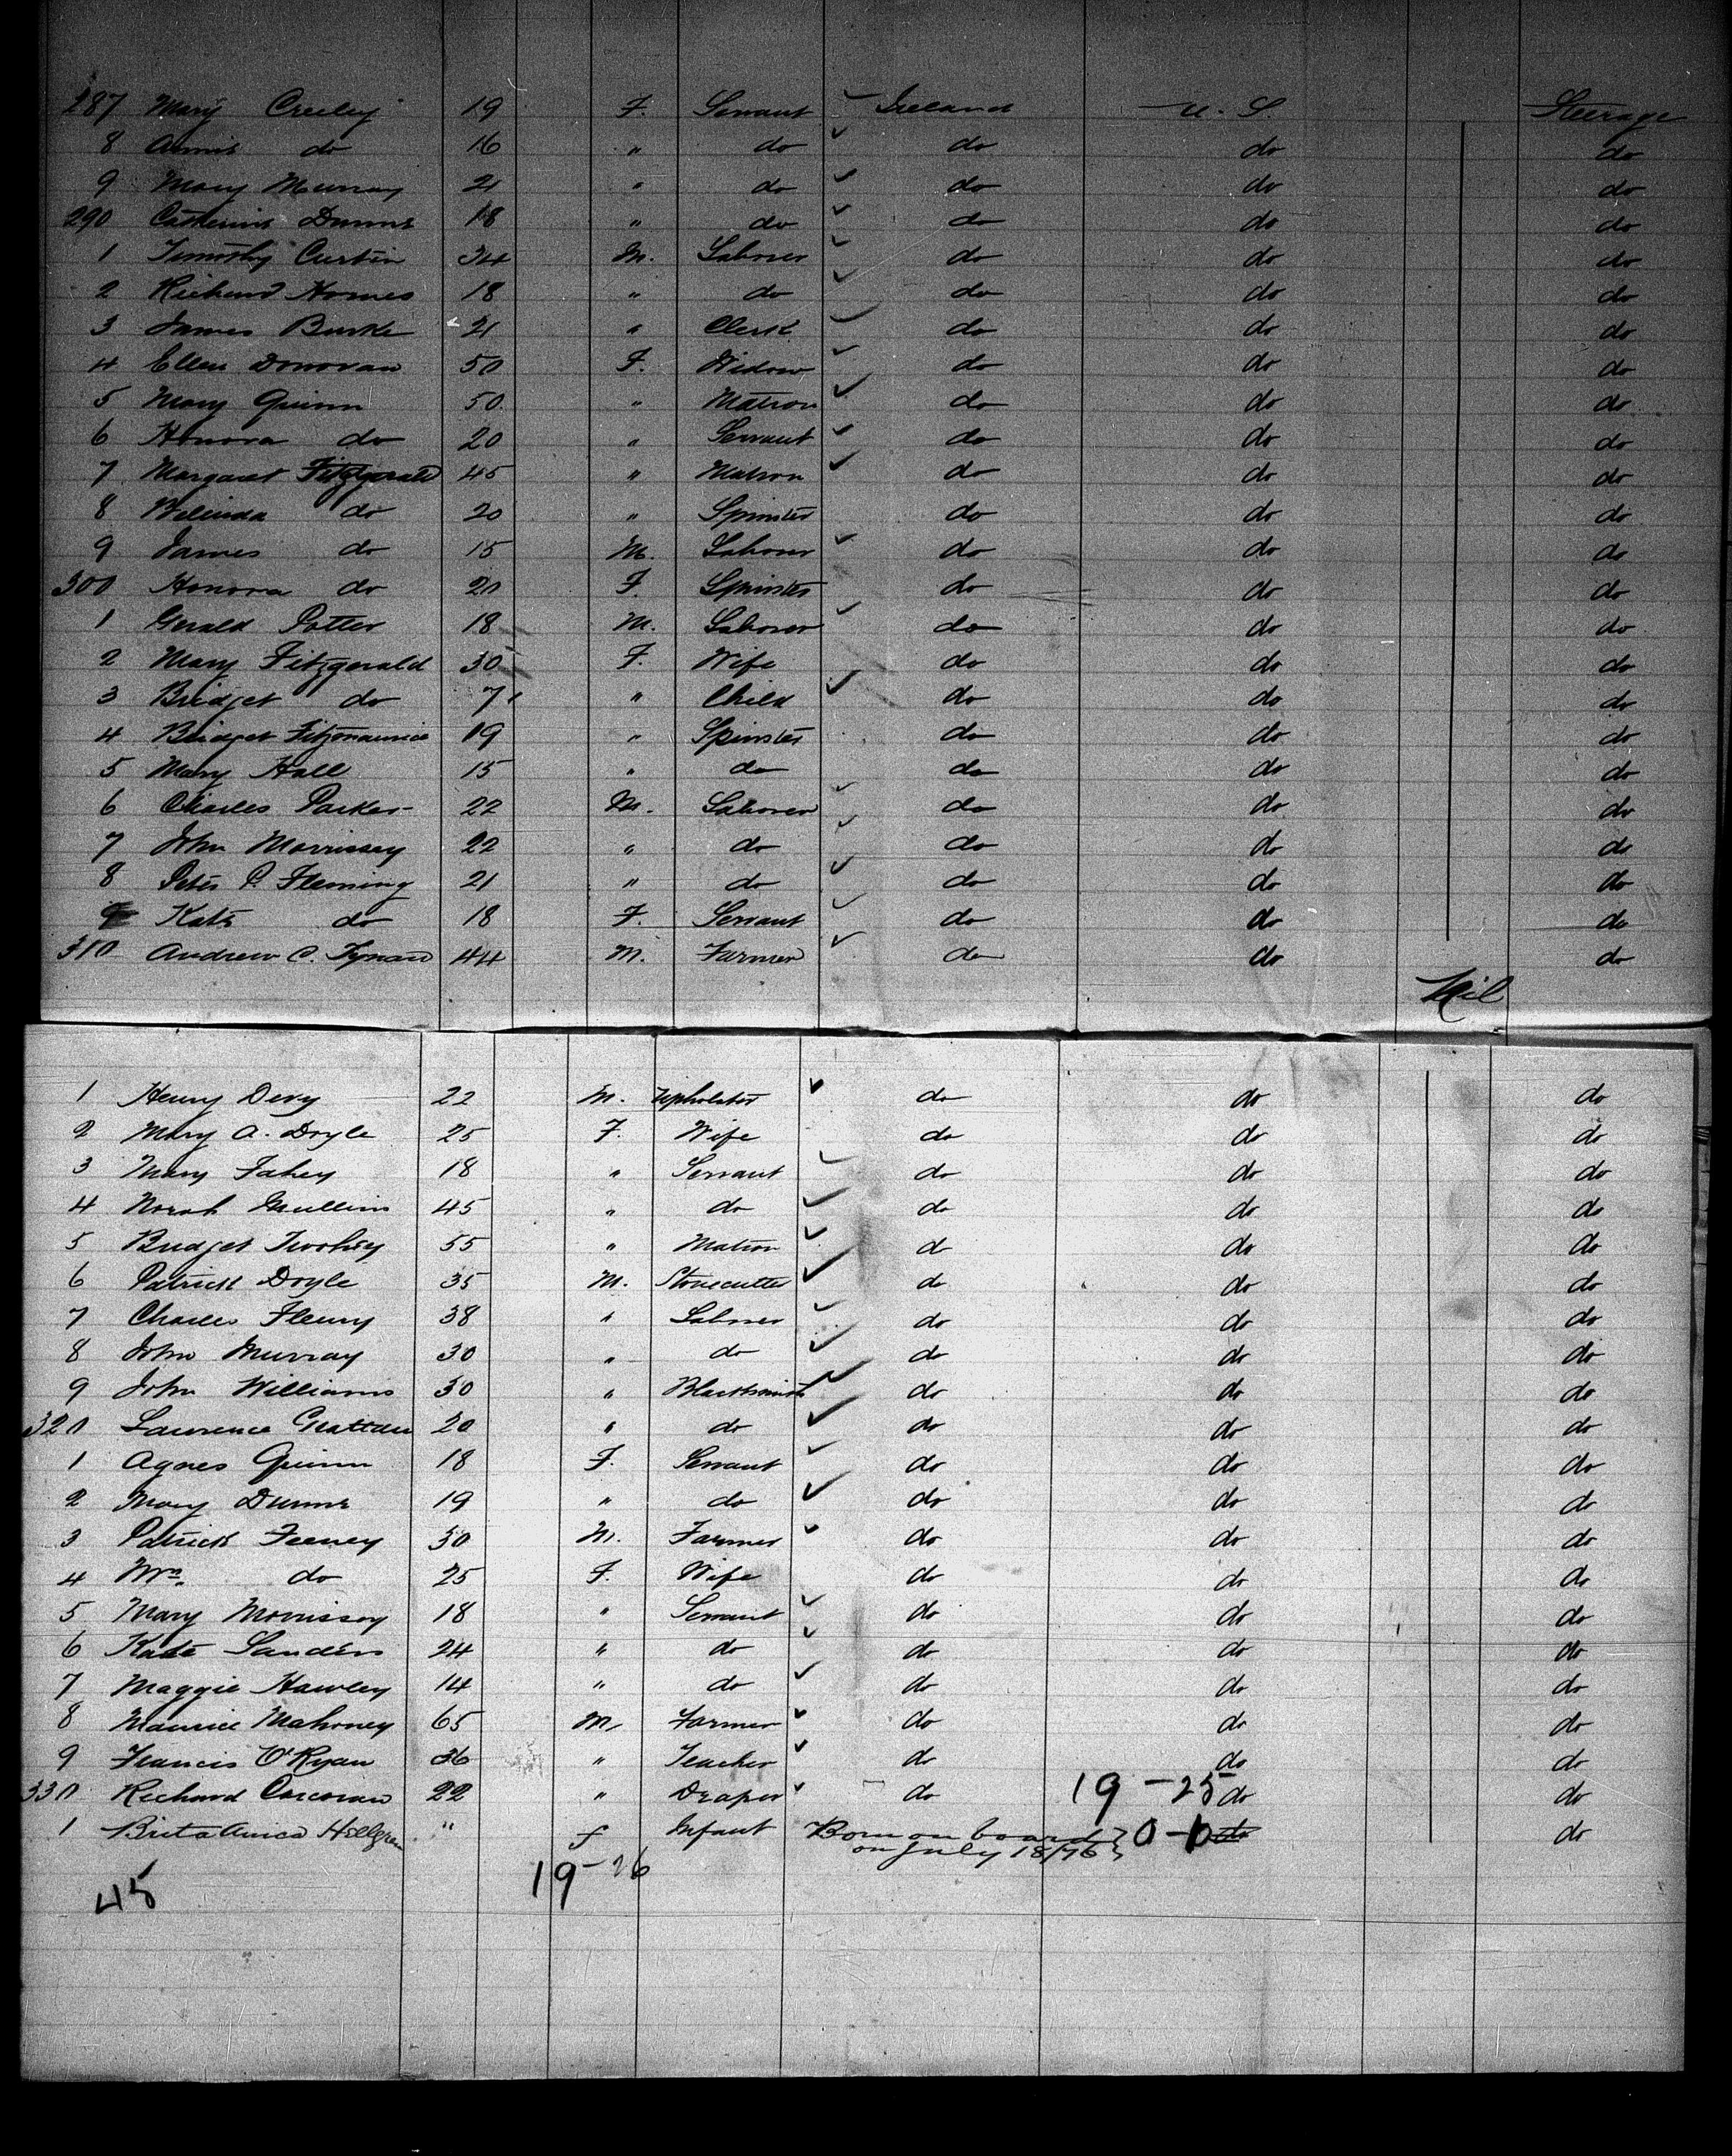 287 Mary Creeley 19 F. Servant ✓ Ireland U. S. Steerage
8 Annie do 16 " do ✓ do do do
9 Mary Murray 21 " do ✓ do do do
290 Catherine Dunne 18 " do ✓ do do do
1 Timothy Curtin 34 M. Laborer ✓ do do do
2 Richard 18 " do ✓ do do do
3 James Burke 21 " Clerk ✓ do do do
4 Ellen Donovan 50 F. Widow ✓ do do do
5 Mary Quinn 50. " Matron ✓ do do do
6 Honora do 20 " Servant ✓ do do do
7 Margaret Fitzgerald 45 " Matron ✓ do do do
8 Belinda do 20 " Spinster do do do
9 James do 15 M. Laborer ✓ do do do
300 Honora do 20 F. Spinster do do do
1 Gerald Potter 18 M. Laborer ✓ do do do
2 Mary Fitzgerald 30 F. Wife do do do
3 Bridget do 7 " Child ✓ do do do
4 Bridget Fitzmaurice 19 " Spinster do do do
5 Mary Hall 15 " do do do do
6 Charles Parker 22 M. Laborer ✓ do do do
7 John Morrissey 22 " do ✓ do do do
8 Peter P. Fleming 21 " do ✓ do do do
9 Kate do 18 F. Servant ✓ do do do
310 Andrew C. Tynan 44 M. Farmer ✓ do do do
Nil
1 Henry Devy 22 M. Upholster ✓ do do do
2 Mary A. Doyle 25 F. Wife do do do
3 Mary Fahey 18 " Servant ✓ do do do
4 Norah Mullins 45 " do ✓ do do do
5 Bridget Twohey 55 " Matron ✓ do do do
6 Patrick Doyle 35 M. Stonecutter ✓ do do do
7 Charles Fleury 38 " Laborer ✓ do do do
8 John Murray 30 " do ✓ do do do
9 John Williams 30 " Blacksmith ✓ do do do
320 Lawrence Grattan 20 " do ✓ do do do
1 Agnes Quinn 18 F. Servant ✓ do do do
2 Mary Dunne 19 " do ✓ do do do
3 Patrick Feeney 30 M. Farmer ✓ do do do
4 Mrs. do 25 F. Wife do do do
5 Mary Morrissey 18 " Servant ✓ do do do
6 Kate Sanders 24 " do ✓ do do do
7 Maggie Hawley 14 " do ✓ do do do
8 Maurice Mahoney 65 M. Farmer ✓ do do do
9 Francis O'Ryan 36 " Teacher ✓ do do do
330 Richard Corcoran 22 " Draper ✓ do 19-25 do do
1 Britalnica Hillgren " f Infant Born on board } 0-1 do do
on July 18/76
19-26
45